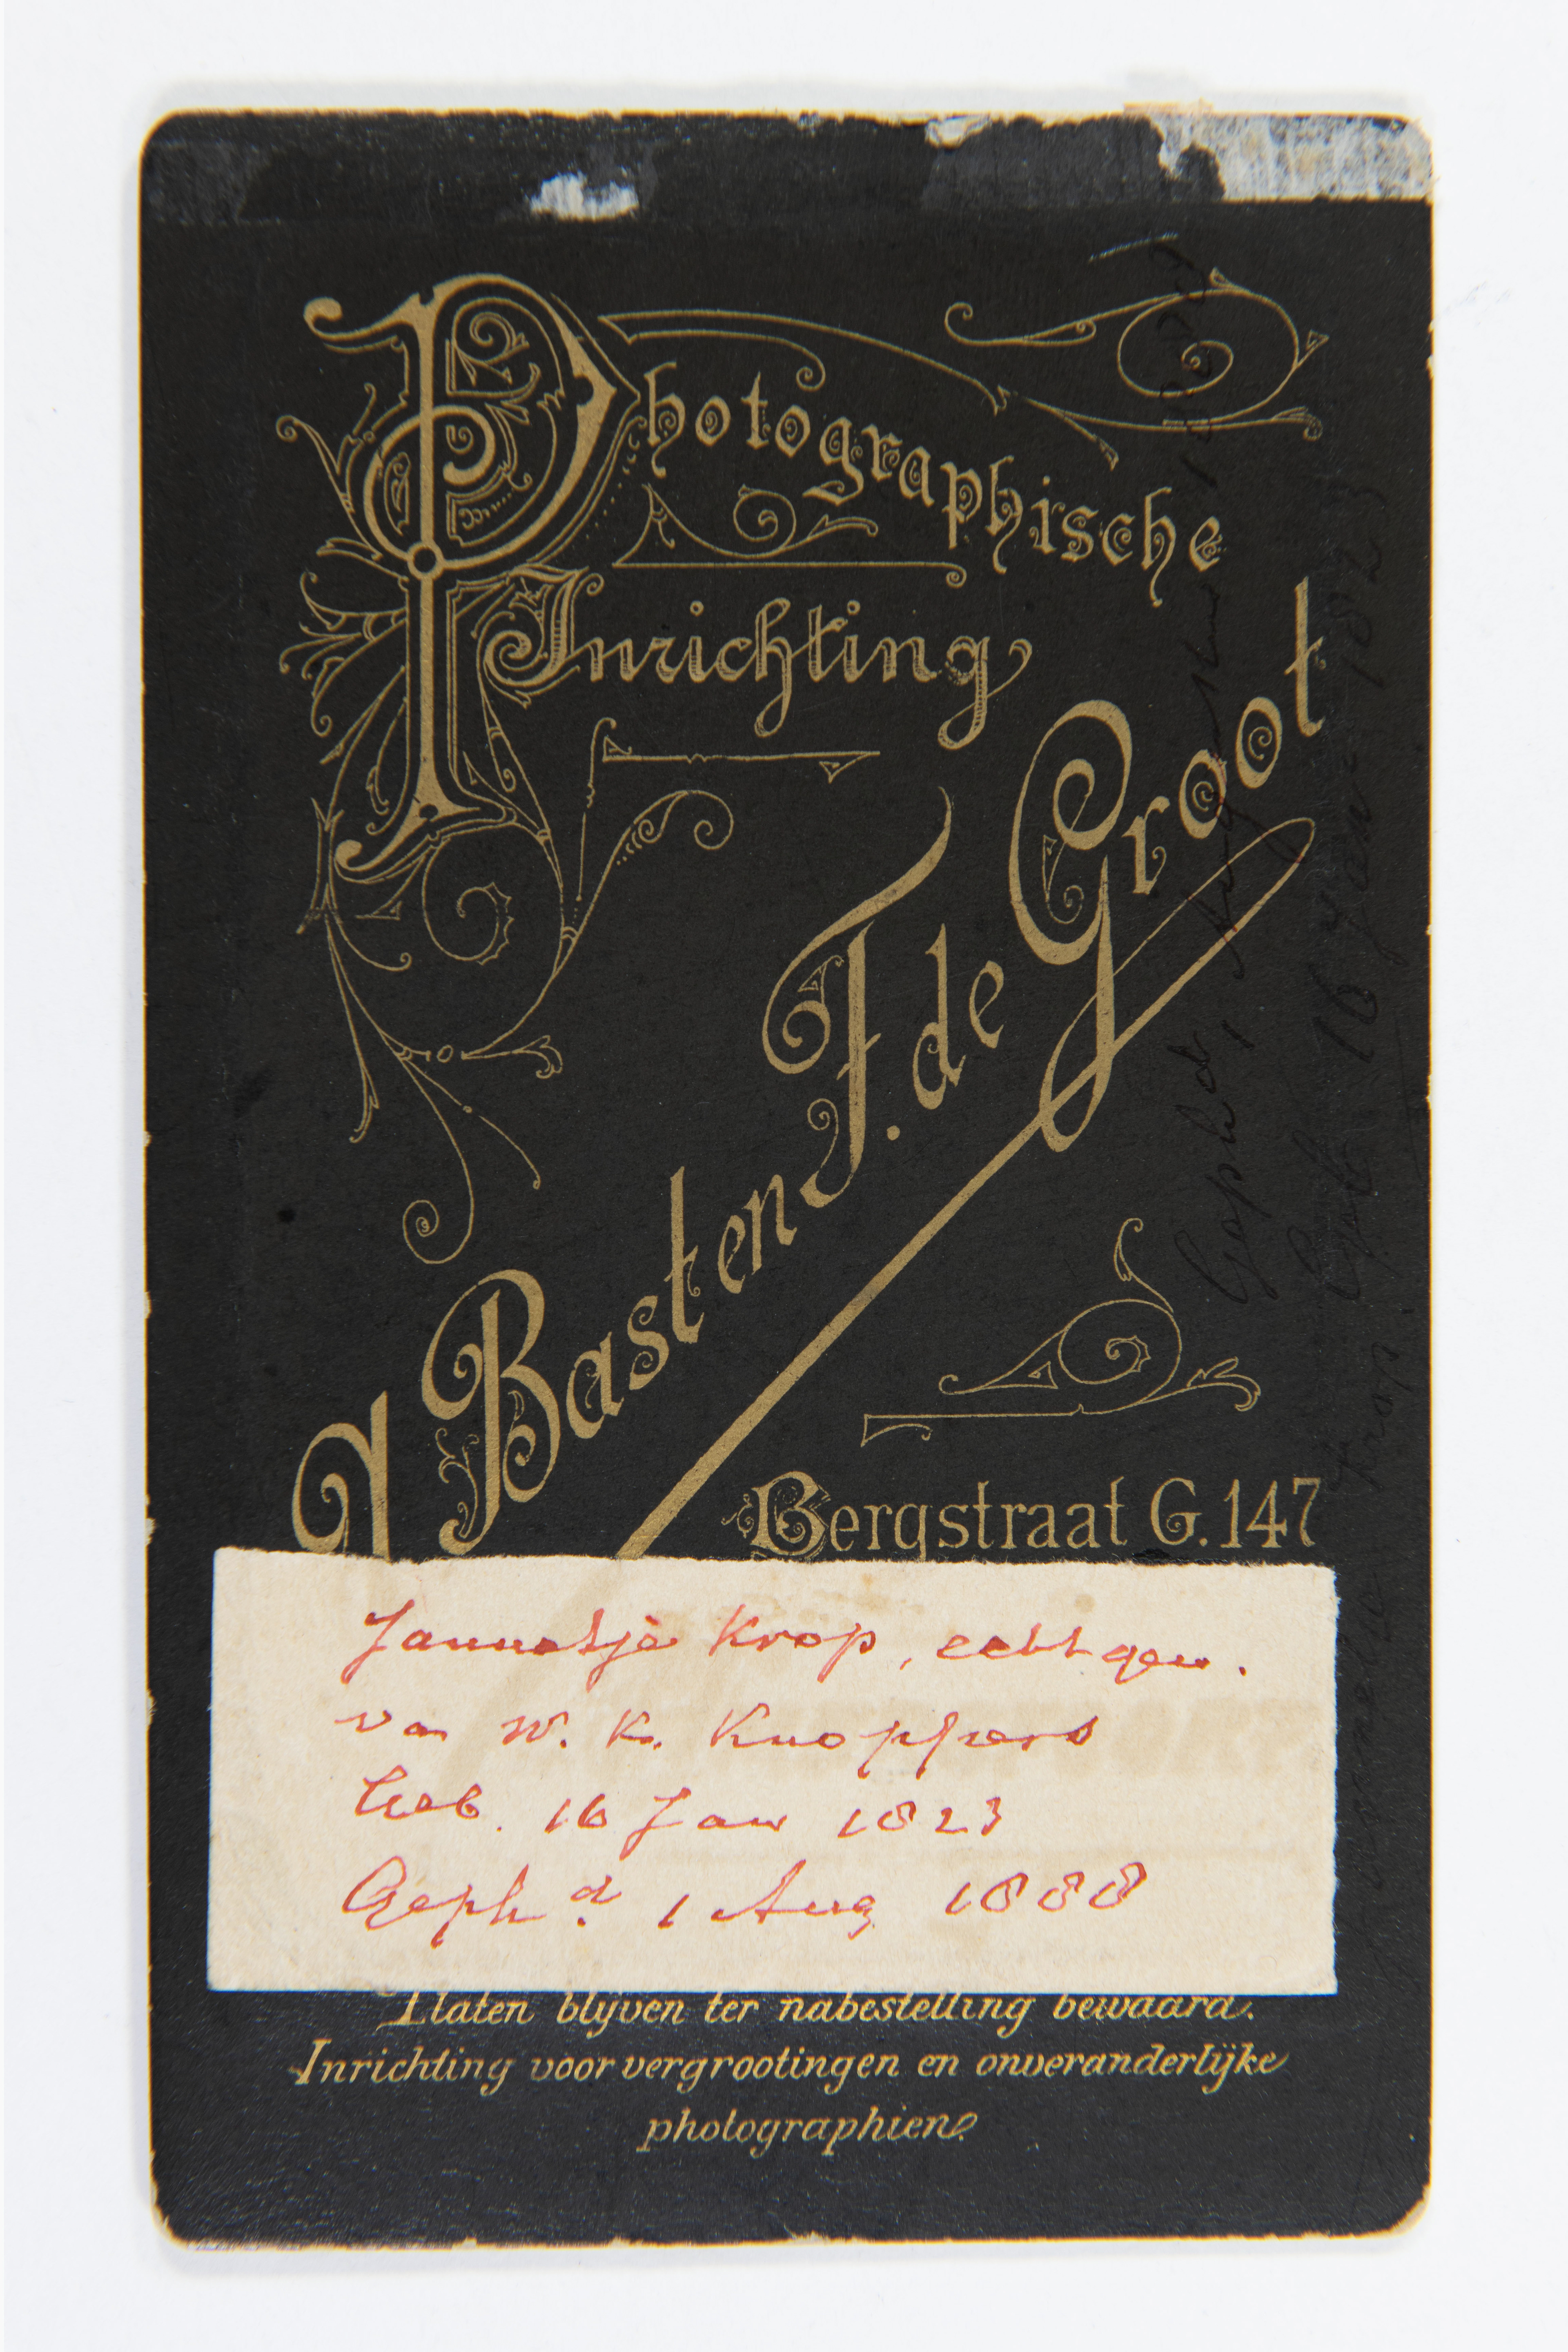 Photographische
Inrichting
A Basten F. de Groot
Bergstraat G. 147
Jannetje Krop, echtgen.
van W. K. Knoppers
Geb. 16 Jan 1823
Geph.d 1 Aug 1888
Platen blijven ter nabestelling bewaard.
Inrichting voor vergrootingen en onveranderlijke
photographien.
Gephd 1 Augustus
Geb 16 Jan 1823
Krop